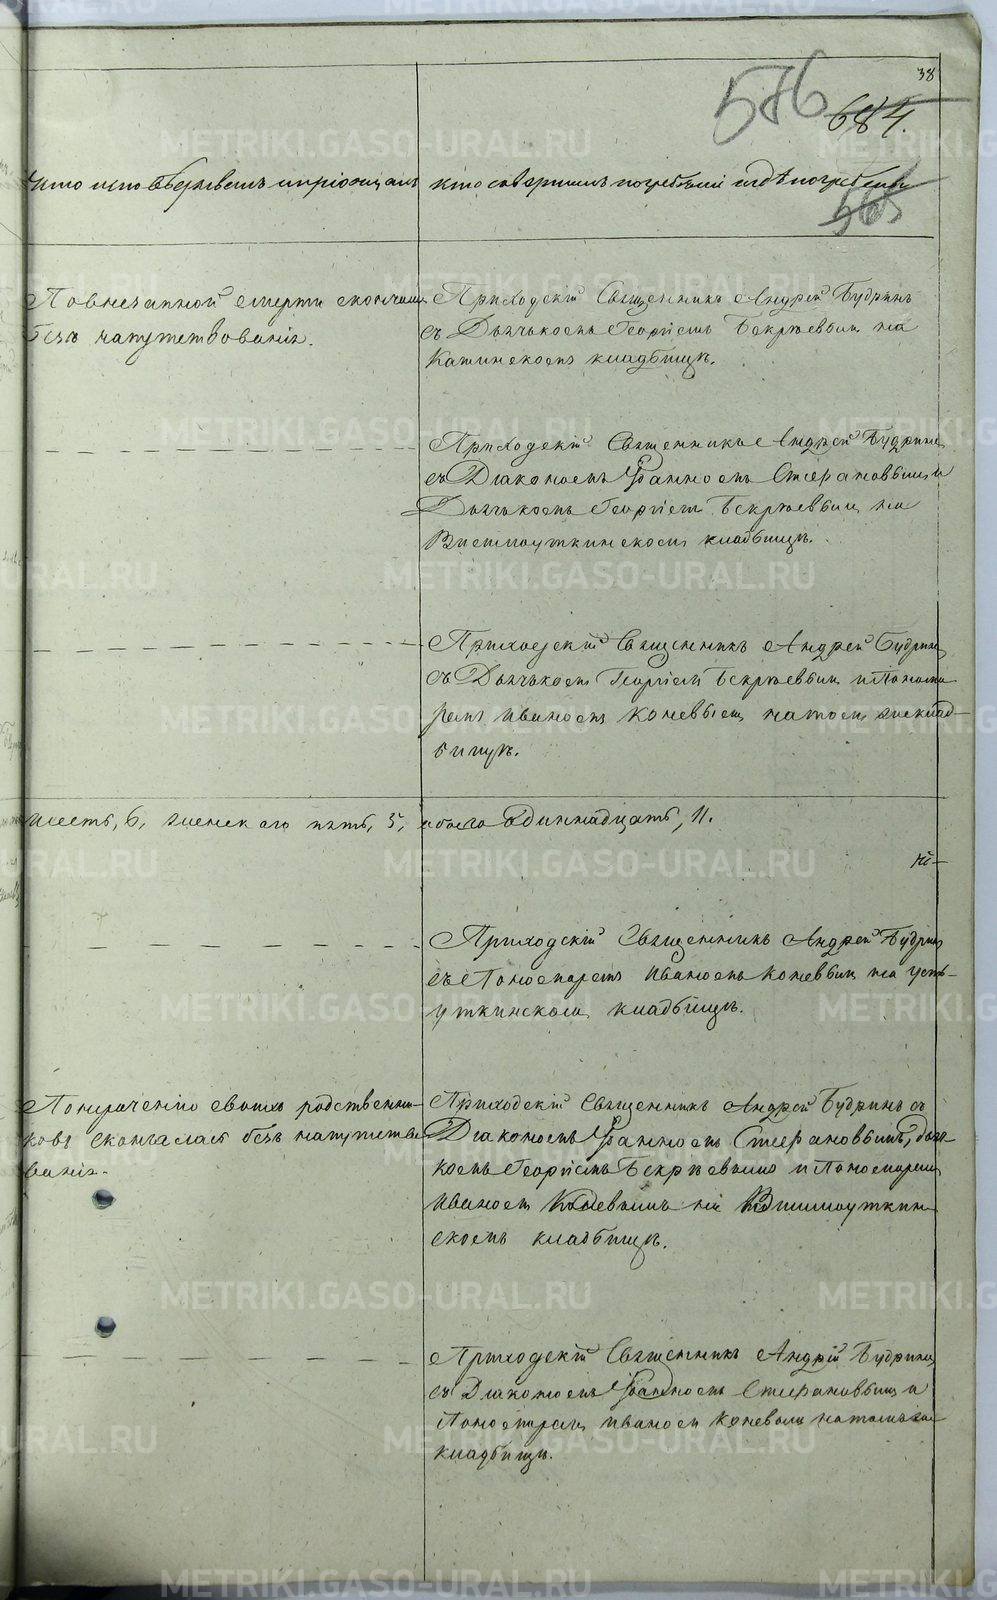 38
576
684.
Кто исповѣдывалъ и пріобщалъ
кто совершилъ погребеніе и гдѣ погребены
565
По внезапной смерти скончался
безъ напутствованія.
Приходскій Священникъ Андрей Будринъ
съ Дьячькомъ Георгіемъ Бекряевымъ на
Каминскомъ кладбищѣ.
Приходскій Священникъ Андрей Будринъ
съ Діакономъ Іоанномъ Стефановымъ и
Дьячькомъ Георгіемъ Бекряевымъ на
Висимоуткинскомъ кладбищѣ.
Приходскій Священникъ Андрей Будринъ
съ Дьячькомъ Георгіемъ Бекряевымъ и Понома
ремъ Иваномъ Коневымъ на томъ же клад-
бищѣ.
шесть, 6, женскаго пять, 5, обоего Одиннадцать, 11.
Приходскій Священникъ Андрей Будринъ
съ Пономаремъ Иваномъ Коневымъ на Усть-
уткинскомъ кладбищѣ.
По нераченію своихъ родственни-
ковъ скончалась безъ напутство
ванія.
Приходскій Священникъ Андрей Будринъ съ
Діакономъ Іоанномъ Стефановымъ, дьяч-
комъ Георгіемъ Бекряевымъ и Пономаремъ
Иваномъ Коневымъ на Висимоуткин-
скомъ кладбищѣ.
Приходскій Священникъ Андрей Будринъ
съ Діакономъ Іоанномъ Стефановымъ и
Пономаремъ Иваномъ Коневымъ на томъ же
кладбищѣ.
METRIKI.GASO-URAL.RU